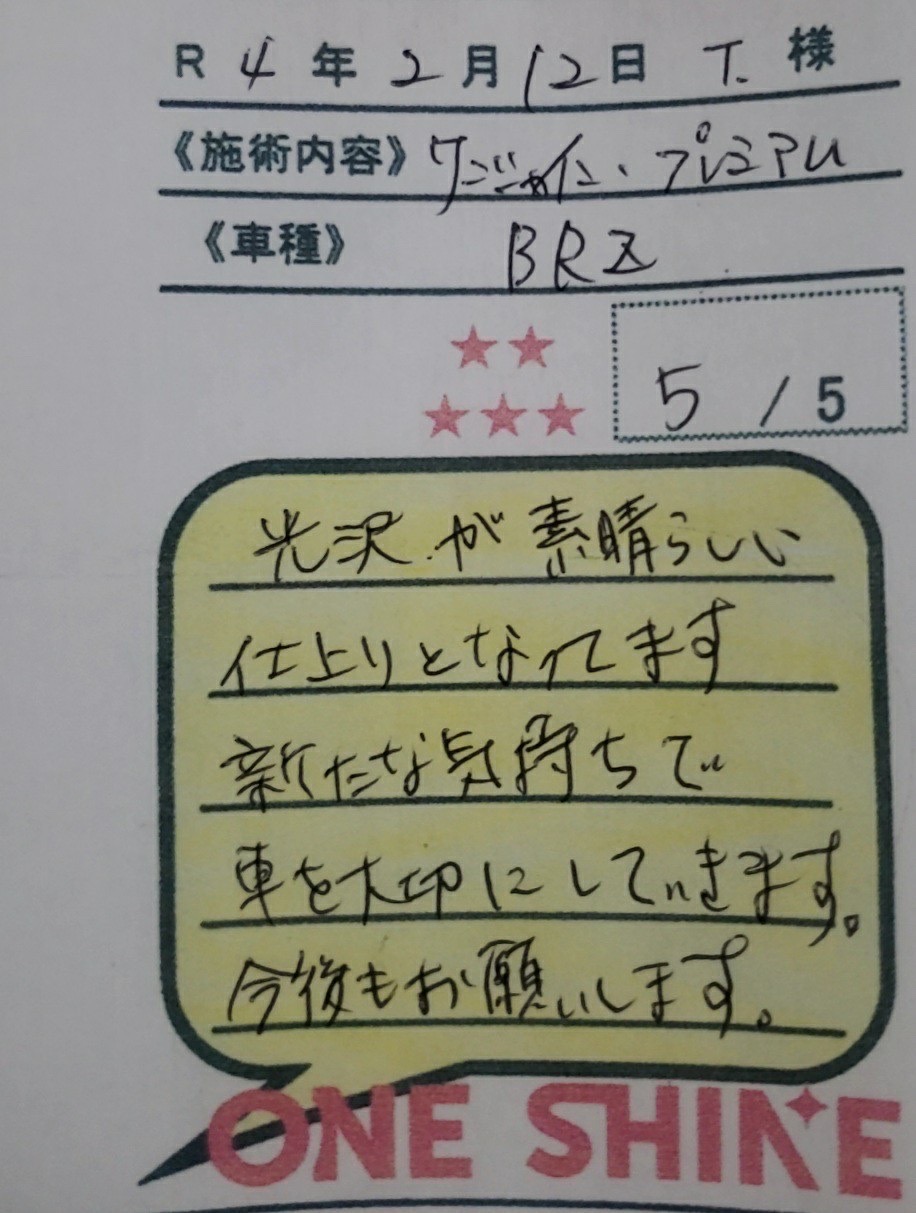 R 4 年 2 月 12 日 T. 様
《施術内容》 プレミアム
《車種》 BRZ
5 / 5
光沢が素晴らしい
仕上りとなってます
新たな気持ちで
車を大切にしていきます。
今後もお願いします。
ONE SHINE